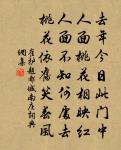 去年今日此門中
人面桃花相映紅
人面不知何處去
桃花依舊笑春風
崔护題都城南庄詞典
網集